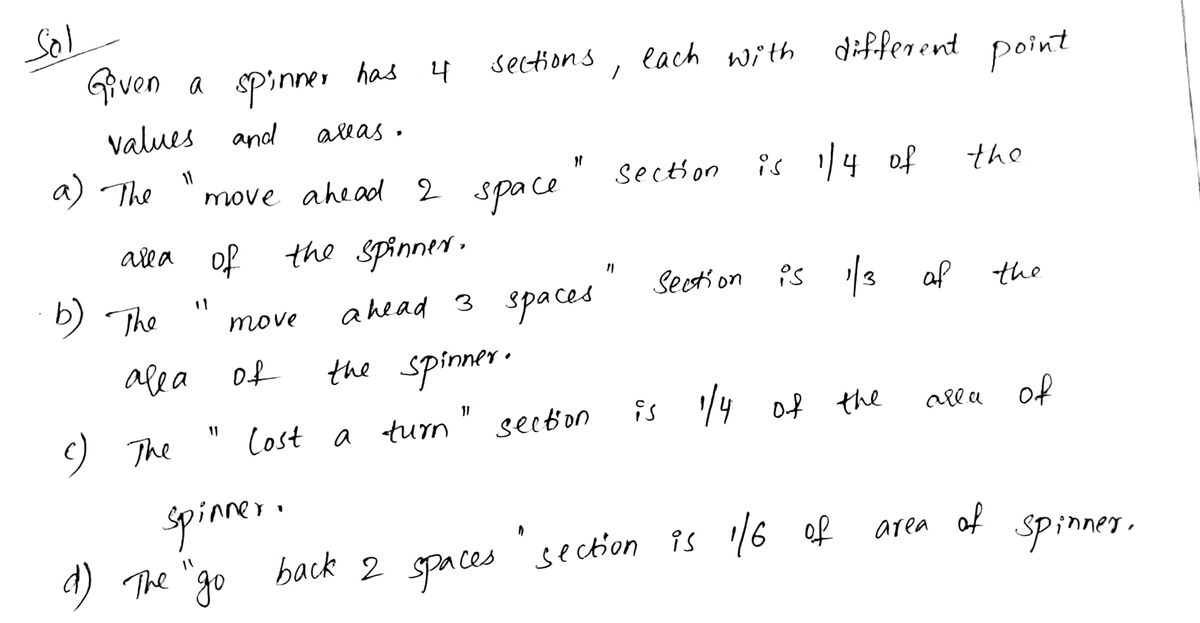 Sol
Given a spinner has 4 sections, each with different point
values and areas.
a) The "move ahead 2 space" section is 1/4 of the
area of the spinner.
b) The "move ahead 3 spaces" section is 1/3 of the
area of the spinner.
c) The "Lost a turn" section is 1/4 of the area of
spinner.
d) The "go back 2 spaces" section is 1/6 of area of spinner.